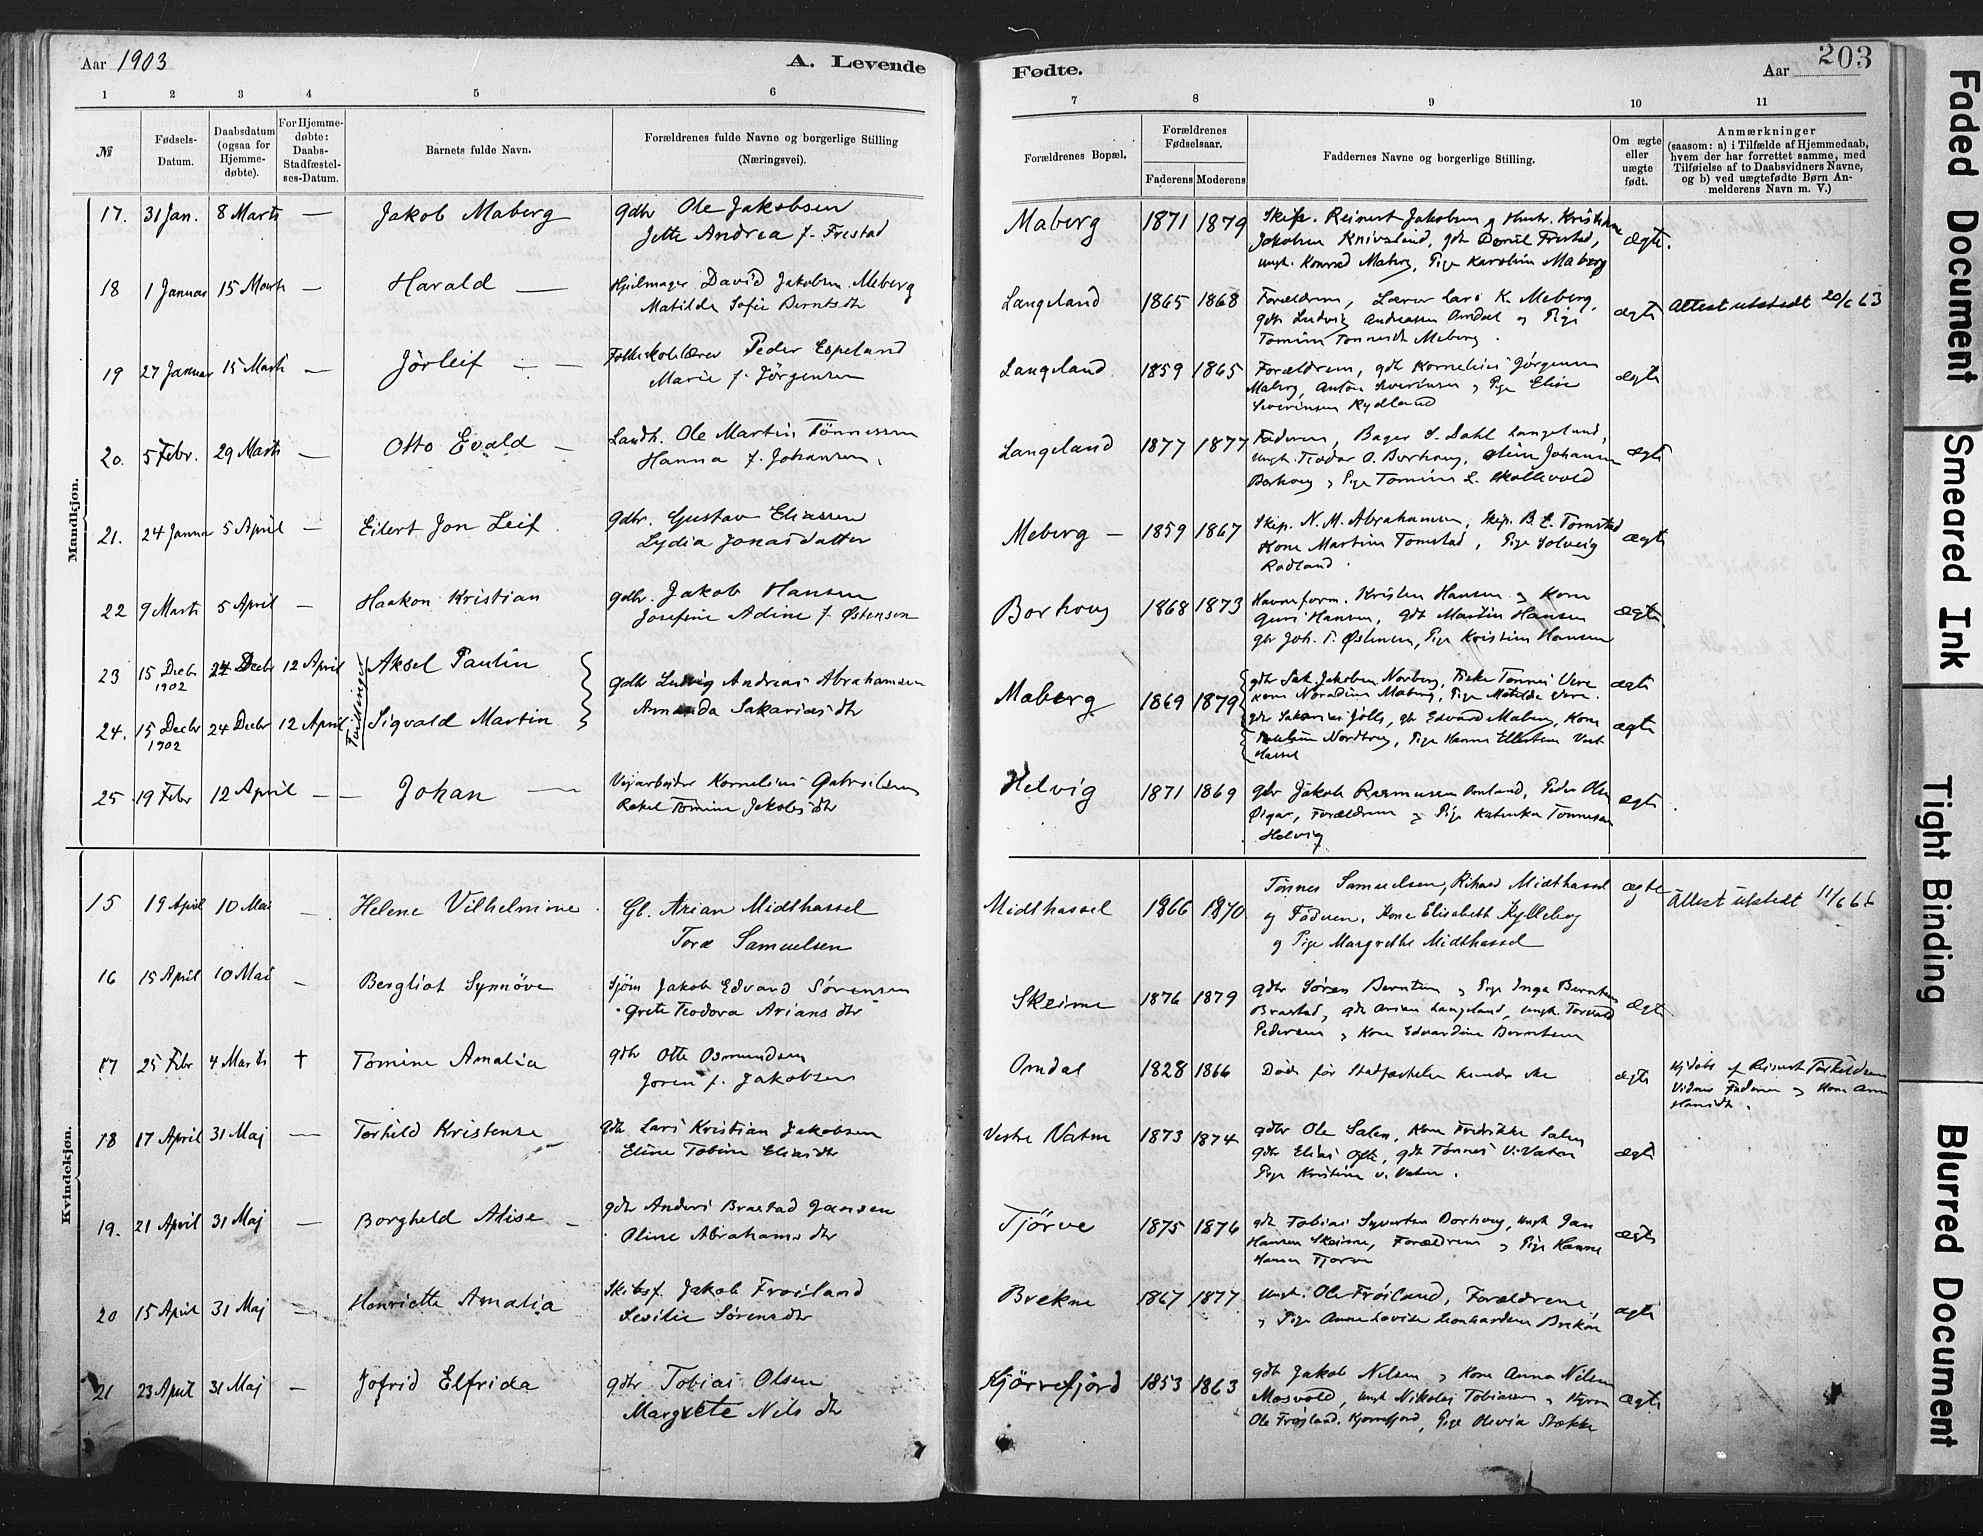 Aar 1903
A. Levende
Fødte.
Aar
203
1 2 3 4 5 6 7 8 9 10 11
№
Fødsels-
Datum.
Daabsdatum
(ogsaa for
Hjemme-
døbte).
For Hjemme-
døbte:
Daabs-
Stadfæstel-
ses-Datum.
Barnets fulde Navn.
Forældrenes fulde Navne og borgerlige Stilling
(Næringsvei).
Forældrenes Bopæl.
Forældrenes
Fødselsaar.
Faderens Moderens
Faddernes Navne og borgerlige Stilling.
Om ægte
eller
uægte
født.
Anmærkninger
(saasom: a) i Tilfælde af Hjemmedaab,
hvem der har forrettet samme, med
Tilføielse af to Daabsvidners Navne,
og b) ved uægtefødte Børn An-
melderens Navn m. V.)
Mandkjøn.
17. 31 Jan. 8 Marts — Jakob Maberg
gdbr Ole Jakobsen
Jette Andrea f. Frestad
Maberg 1871 1879
Skipr. Reinert Jakobsen og Hustr. Kristiane
Jakobsen Knivsland, gdbr Daniel Frestad,
ungk. Konrad Maberg, Pige Karoline Maberg
ægte.
18 1 Januar 15 Marts — Harald —
Hjulmager David Jakobsen Meberg
Matilde Sofie Berntsdtr
Langeland 1865 1868
Forældrene, Lærer Lars K. Meberg,
gdbr Ludvig Andreasen Omdal og Pige
Tomine Tonnesdtr Meberg.
ægte
Attest utstedt 20/6 63
19 27 Januar 15 Marts — Jörleif — —
Folkeskolelærer Peder Espeland
Marie f. Jörgensen
Langeland 1859 1865
Forældrene, gdbr Kornelius Jörgensen
Maberg, Anton Severinsen og Pige Elise
Severinsen Rydland
ægte
20. 5 Febr. 29 Marts — Otto Evald —
Landh. Ole Martin Tönnessen
Hanna f. Johansen.
Langeland 1877 1877
Faderen, Bager S. Dahl Langeland,
ungk. Teodor O. Borhoug, Johansen
Borhoug og Pige Tomine L. Skollevold
ægte
21. 24 Januar 5 April — Eilert Jon Leif.
gdbr. Gustav Eliassen
Lydia Jonasdatter
Meberg — 1859 1867
Skip. N. M. Abrahamsen, Skip. B. E. Tomstad
Kone Martine Tomstad, Pige Solveig
Rødland.
ægte
22 9 Marts 5 April — Haakon Kristian
gdbr. Jakob Hansen
Josefine Adine f. Østensen
Borhoug 1868 1873
Havneform. Kristen Hansen og Kone
Guri Hansen, gdbr Martin Hansen
gbr Joh. T. Østensen, Pige Kristine Hansen
ægte.
23 15 Decbr 1902 24 Decbr 12 April Aksel Paulin
Tvillinger
24. 15 Decbr 1902 24 Decbr 12 April Sigvald Martin
gdbr Ludvig Andreas Abrahamsen
Amanda Sakariasdtr
Maberg 1869 1879
gdbr Sak. Jakobsen Norberg, Fisker Tønnes Vere
kone Noradine Maberg, Pige Matilde Vere.
ægte
gdbr Sakarias Jølle, gbr Edvard Maberg, Kone
Nordberg, Pige Hanna Ellertsen Vest
Hassel
ægte
25 19 Febr 12 April — — Johan —
Veiarbeider Kornelius Gabrielsen
Rakel Tomine Jakobsdtr
Helvig 1871 1869
gbr Jakob Rasmussen Omland, Peder Olsen
Forældrene og Pige Katinka Tonnesen
Helvig
ægte.
Kvindekjøn.
15 19 April 10 Mai — Helene Vilhelmine.
Gl. Arian Midthassel
Tora Samuelsen
Midthassel 1866 1870
Tønnes Samuelsen, Rikard Midthassel
og Faderen, Kone Elisabeth Kyllebog
og Pige Margrethe Midthassel
ægte
Attest utstedt 11/6 68
16 15 April 10 Mai — Bergliot Synnöve
Sjöm Jakob Edvard Sörensen
Grete Teodora Ariansdtr
Skeime 1876 1879
gdbr Sören Berntsen og Pige Inga Berntsen
Brastad, gdbr Arian Langeland, ungk. Torvald
Pedersen og Kone Edvardine Berntsen
ægte
17 25 Febr 4 Marts † Tomine Amalia
gdbr Otte Osmundsen
Joren f. Jakobsen
Omdal 1828 1866
Døde før Stadfæstelse kunde ske
ægte
Hjdøbt af Reinert Torkeldsen
Vidner Faderen og Kone Anne
Hansdtr.
18 17 April 31 Maj — Torhild Kristense —
gdbr Lars Kristian Jakobsen
Eline Tobine Eliasdtr
Vestre Vatne 1873 1874
gdbr Ole Salen, Kone Fredrikke Salen
gdbr Elias Ore, gdbr Tønnes V. Vatne
Pige Kristine V. Vatne.
ægte
19. 21 April 31 Maj — Borgheld Alise —
gdbr Anders Braastad Jansen
Oline Abrahamsdtr
Tjörve 1875 1876
gdbr Tobias Syvertsen Borhoug, ungk Jan
Hansen Skeime, Forældrene og Pige Hanna
Hansen Tjorve
ægte
20 15 April 31 Maj — Henriette Amalia
Skibsf. Jakob Fröiland
Sesilie Sørensdtr
Brekne 1867 1877
ungk. Ole Fröiland, Forældrene,
og Pige Anne Lovise Leonhardsen Brekne
ægte
21 23 April 31 Maj — Jofrid Elfrida
gdbr Tobias Olsen
Margrete Nilsdtr
Kjørrefjord 1853 1863
gdbr Jakob Nilsen og Kone Anna Nilsen
Mosvold, ungk Nikolai Tobiassen og
Ole Frøiland. Kjørrefjord, Pige Olevia Stokke
ægte
Faded Document
Smeared Ink
Tight Binding
Blurred Document